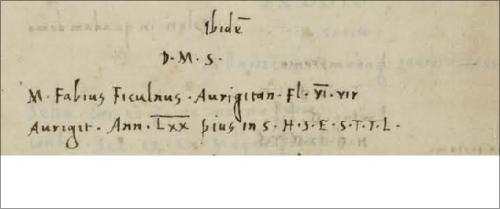 Ibidē
D · M · S ·
M · Fabius Ficulnus · Aurigitan · Fl · V̅I̅ · vir
Aurigit · Ann · L̅X̅X̅ pius in s · H · S · E · S · T · T · L ·